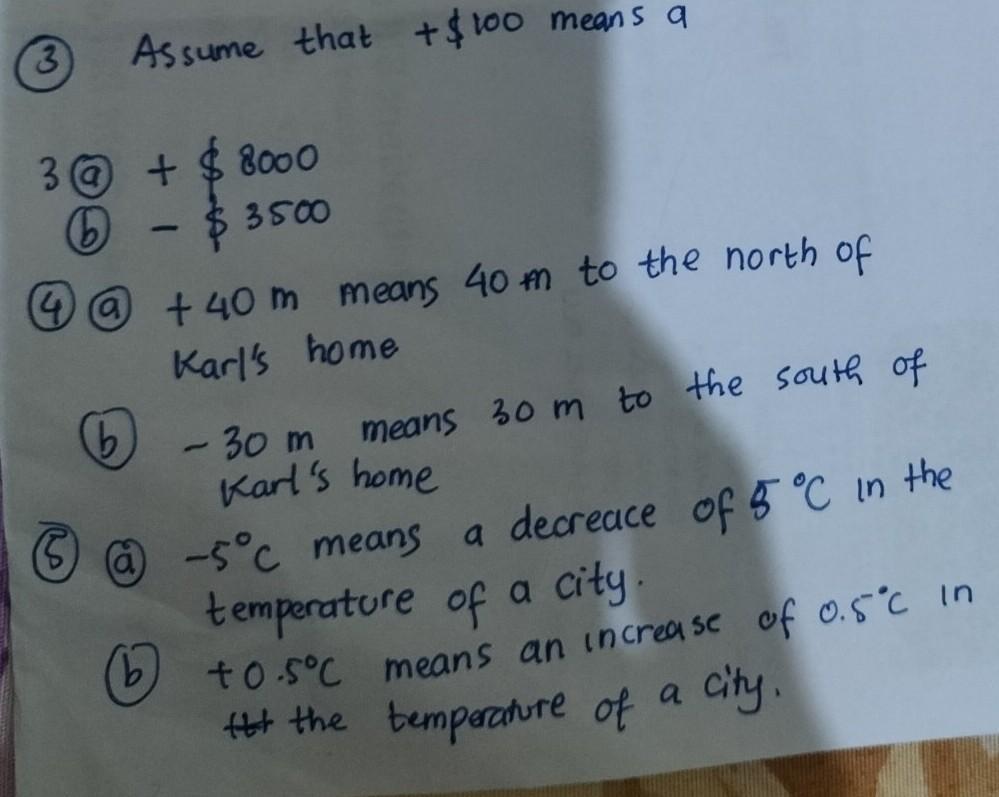 ③ Assume that +$100 means a
3ⓐ + $ 8000
ⓑ - $ 3500
④ⓐ +40 m means 40 m to the north of
Karl's home
ⓑ -30 m means 30 m to the south of
Karl's home
⑤ ⓐ -5°C means a decreace of 5°C in the
temperature of a city.
ⓑ +0.5°C means an increase of 0.5°C in
the temperature of a city.